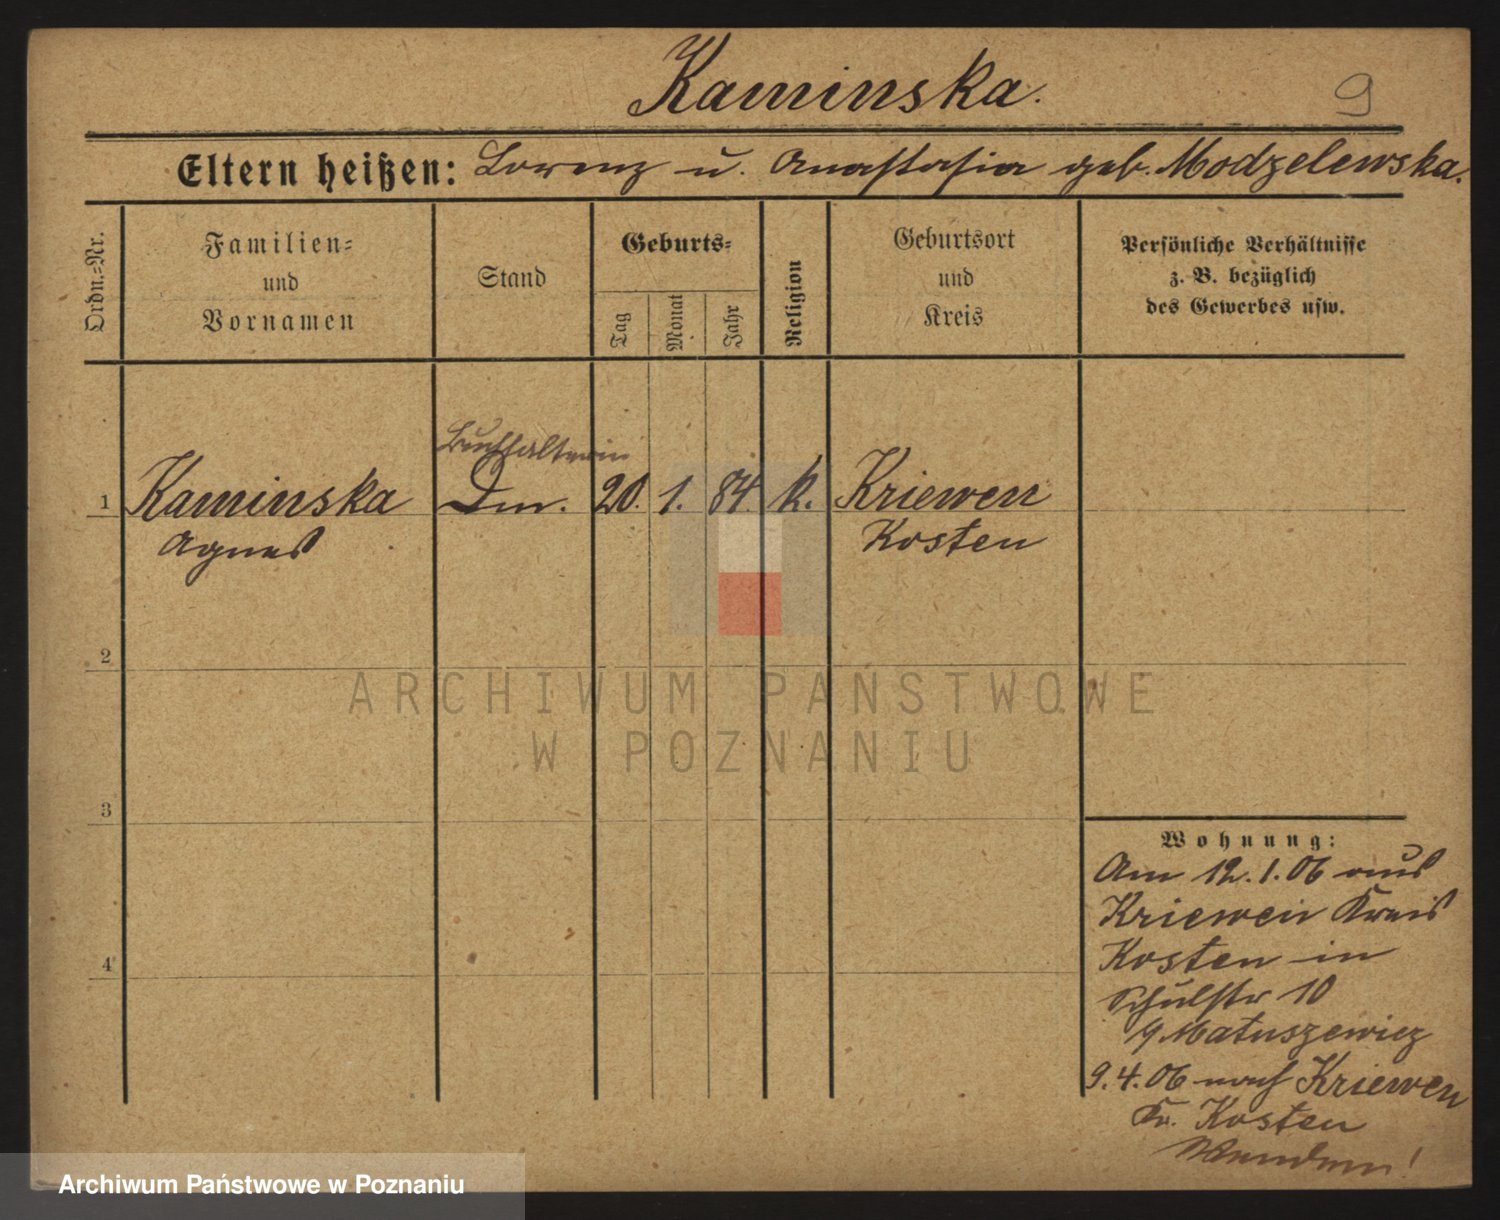 Kaminska.
9
Eltern heißen: Lorenz u. Anastasia geb. Modzelewska.
Ordn.=Nr.
Familien=
und
Vornamen
Stand
Geburts=
Tag
Monat
Jahr
Religion
Geburtsort
und
Kreis
Persönliche Verhältnisse
z. B. bezüglich
des Gewerbes usw.
Buchhalterin
1 Kaminska 20. 1. 84. k. Kriewen
Agnes Kosten
2
3
4
ARCHIWUM PAŃSTWOWE
W POZNANIU
Wohnung:
Am 12.1.06 aus
Kriewen Kreis
Kosten in
Schulstr 10
Matuszewicz
9.4.06 nach Kriewen
Kr. Kosten
Wenden!
Archiwum Państwowe w Poznaniu